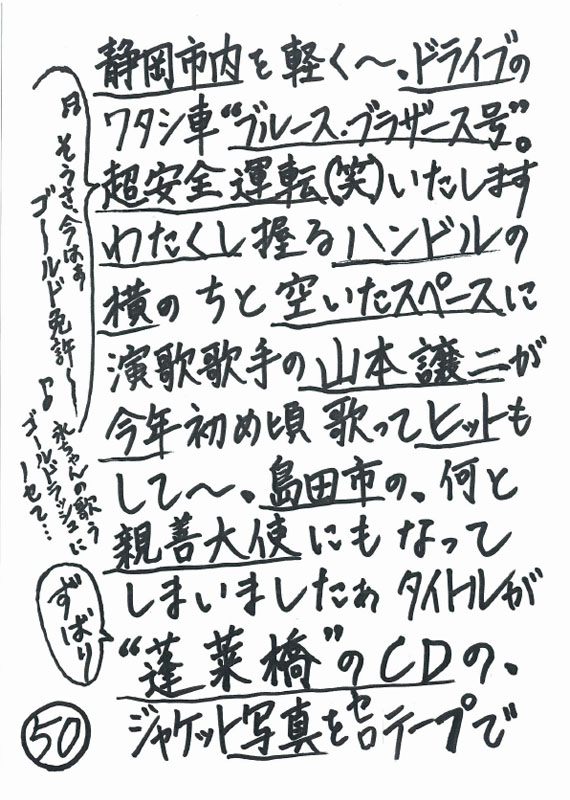 静岡市内を軽く〜、ドライブの
ワタシ車“ブルース・ブラザース号”。
超安全運転(笑)いたします
わたくし握るハンドルの
横のちと空いたスペースに
演歌歌手の山本譲二が
今年初め頃歌ってヒットも
して〜、島田市の、何と
親善大使にもなって
しまいましたわタイトルが
“蓬莱橋”のCDの、
ジャケット写真をセロテープで
そうさ今はぁ
ゴールド免許〜♪
永ちゃんの歌う
ゴールドラッシュに
ノセて…
ずばり
50